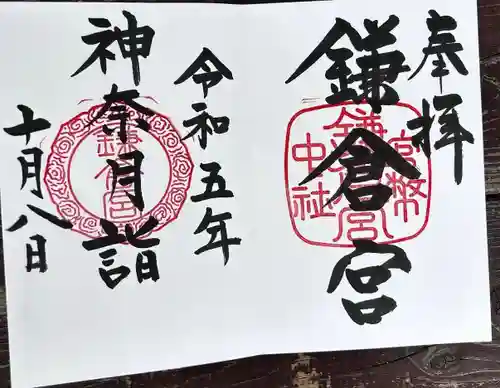 奉拝
鎌倉宮
鎌倉宮
官幣
中社
令和五年
神奈月詣
鎌倉宮
十月八日